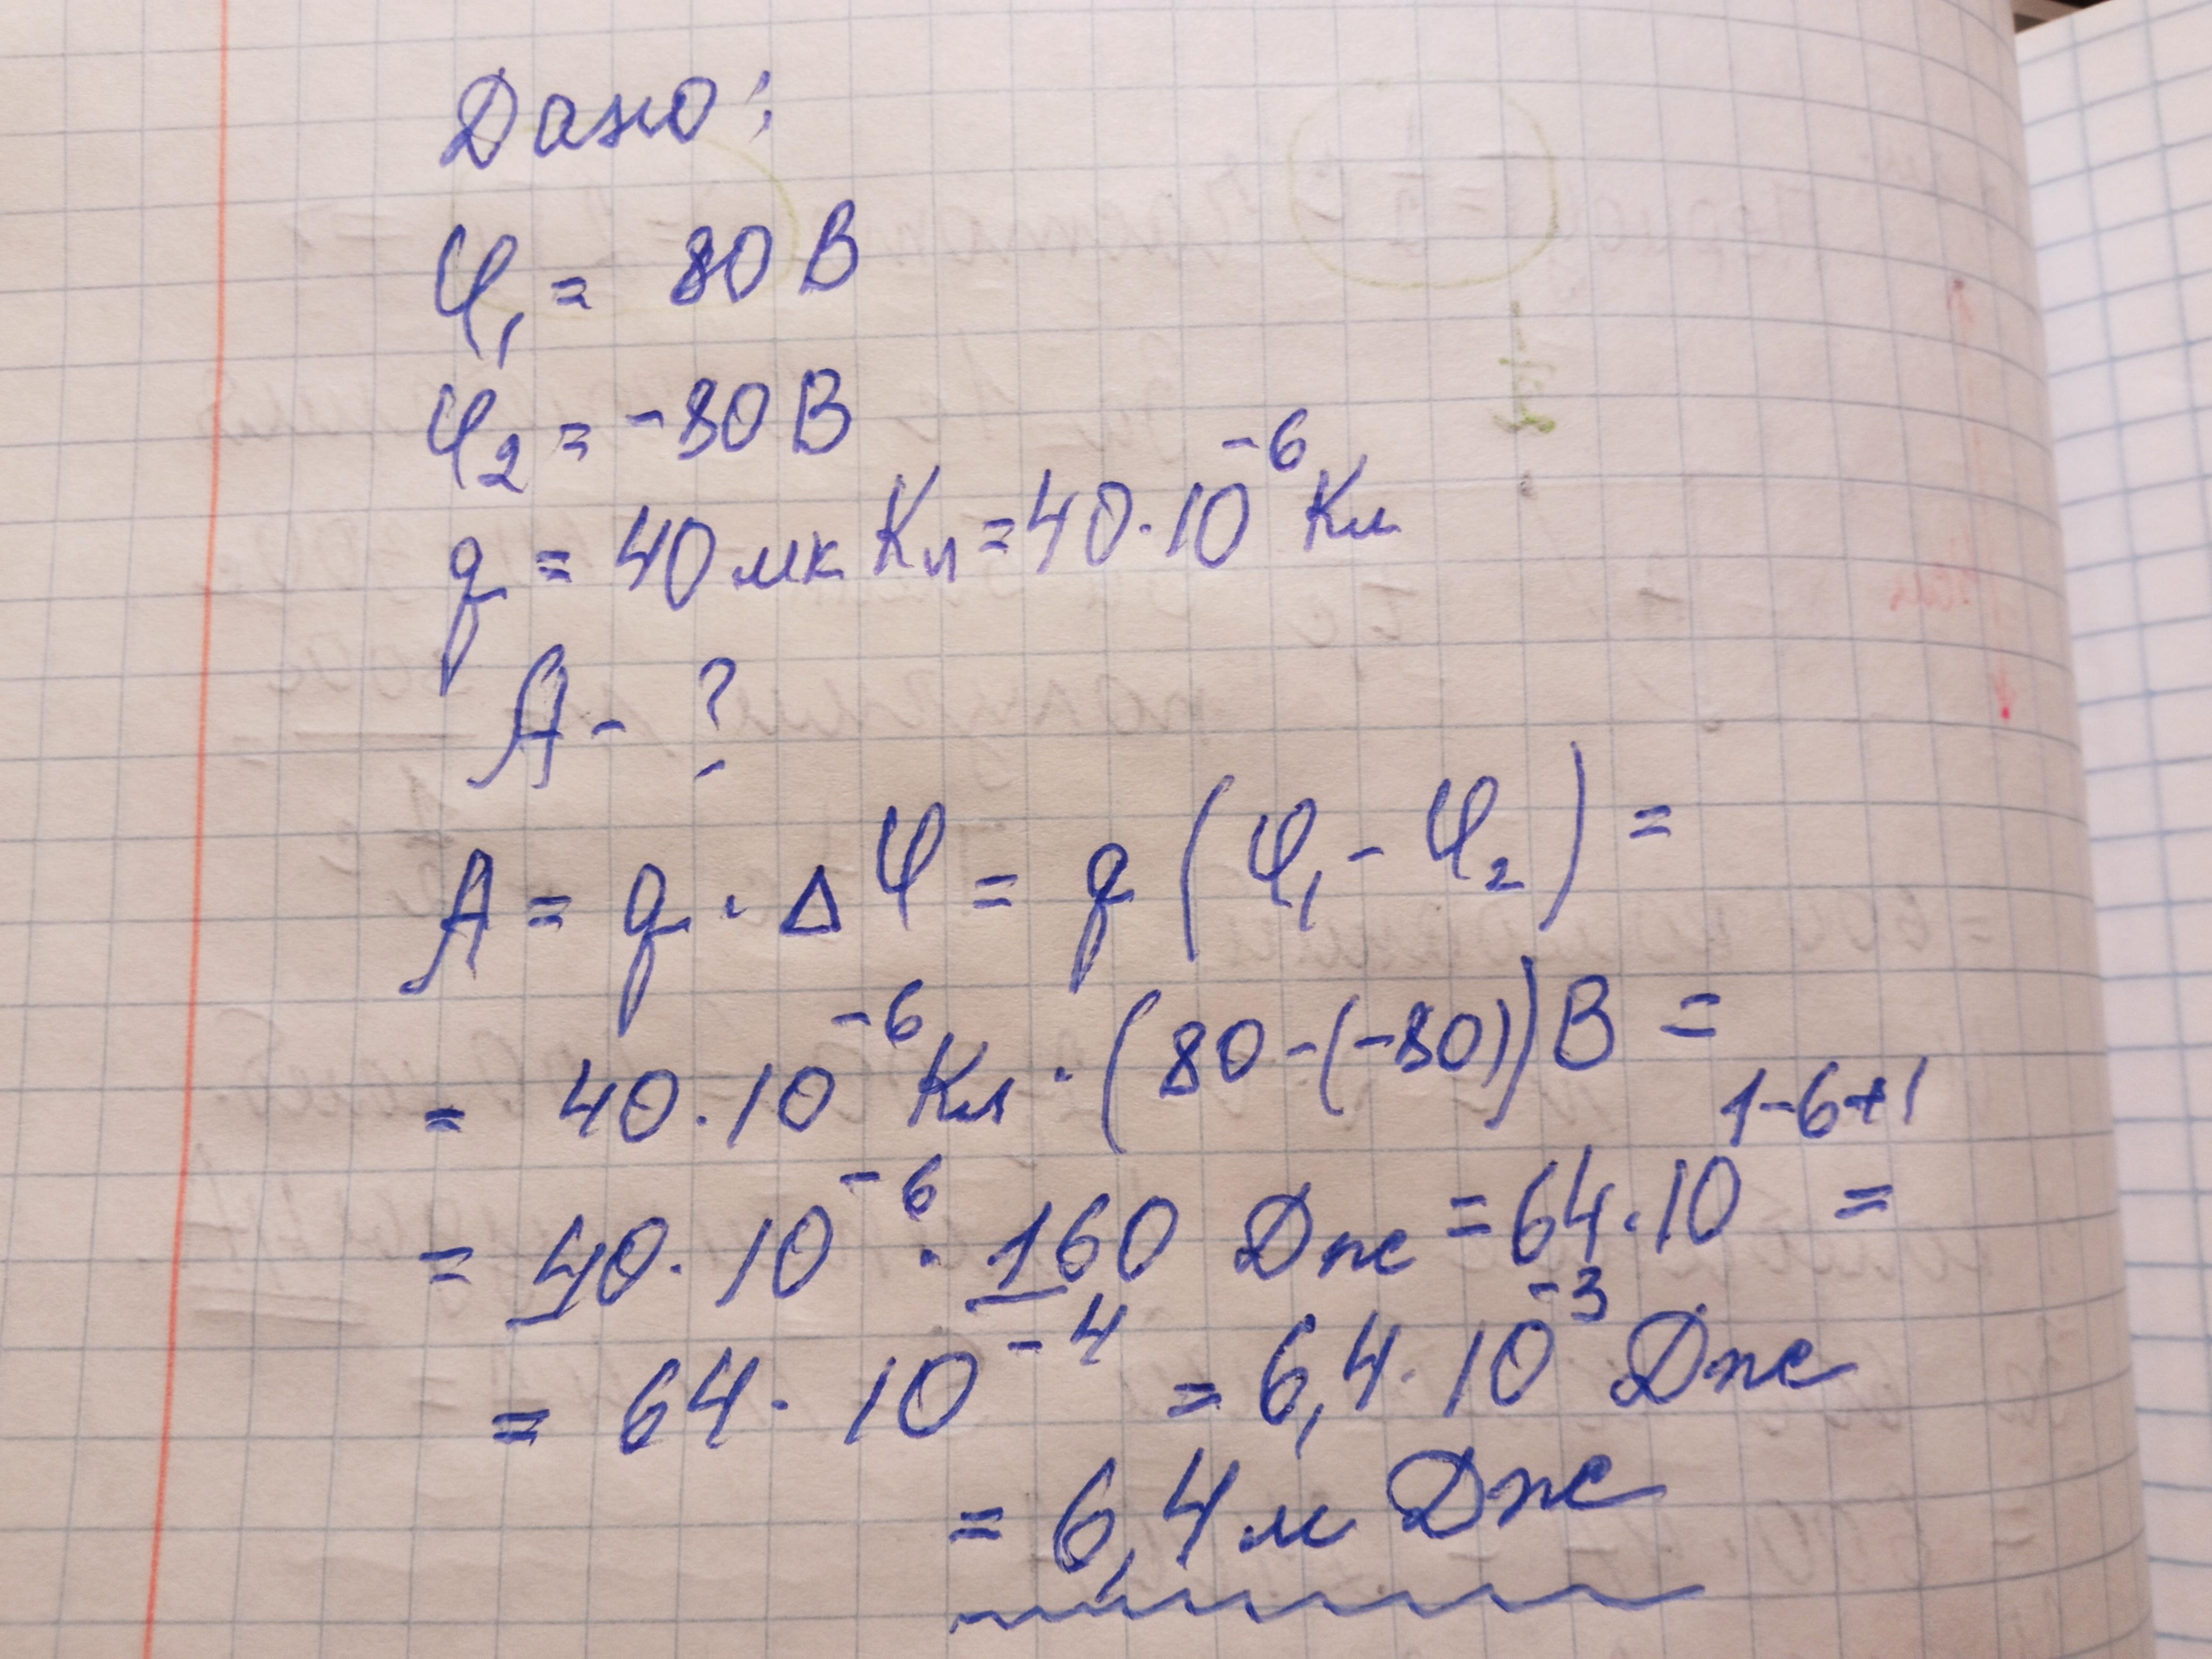 Дано:
φ₁ = 80 В
φ₂ = -80 В
q = 40 мкКл = 40·10⁻⁶ Кл
А - ?
А = q · Δφ = q (φ₁ - φ₂) =
= 40·10⁻⁶ Кл · (80-(-80)) В =
= 40·10⁻⁶ · 160 Дж = 64·10¹⁻⁶⁺¹ =
= 64·10⁻⁴ = 6,4·10⁻³ Дж
= 6,4 мДж